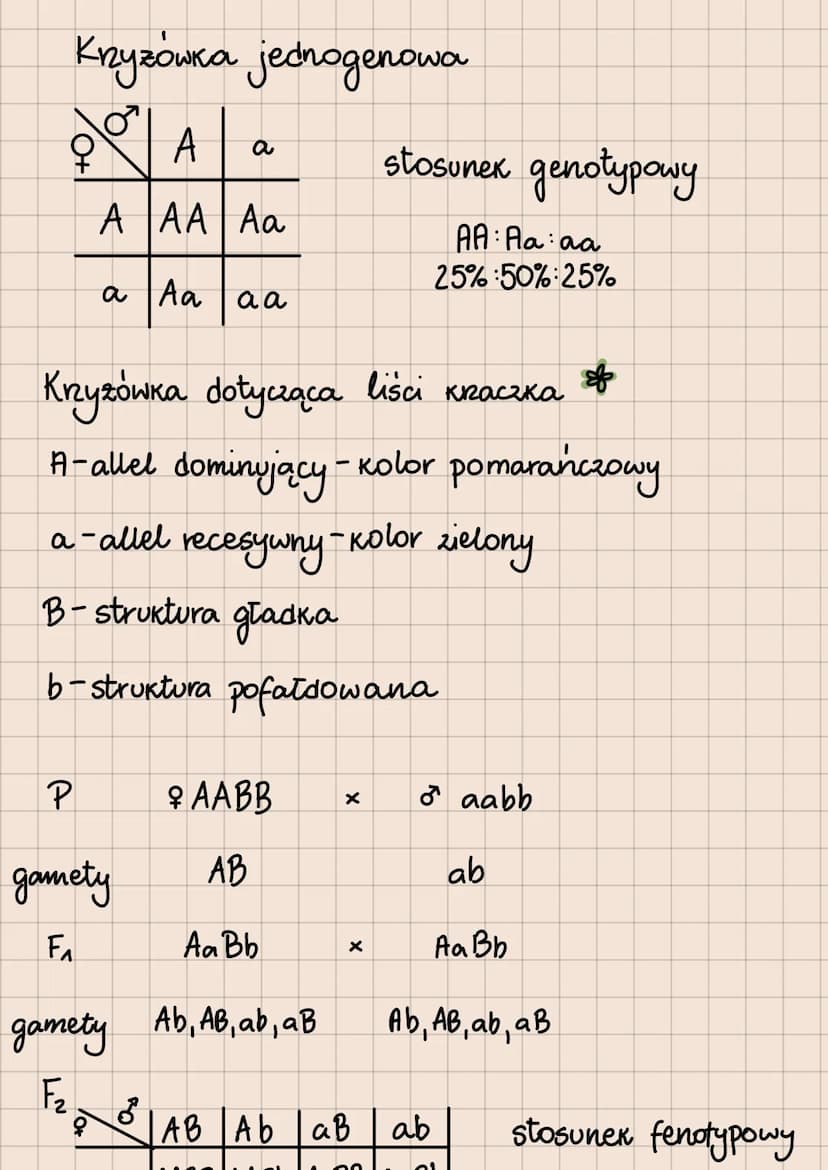 Krzyżówka jednogenowa
♀ ♂ A a
A AA Aa
a Aa aa
stosunek genotypowy
AA:Aa:aa
25%:50%:25%
Krzyżówka dotycząca liści krzaczka *
A-allel dominujący-kolor pomarańczowy
a-allel recesywny-kolor zielony
B-struktura gładka
b-struktura pofałdowana
P ♀ AABB × ♂ aabb
gamety AB ab
F1 AaBb × AaBb
gamety Ab,AB,ab,aB Ab,AB,ab,aB
F2
♀ ♂ AB Ab aB ab
stosunek fenotypowy